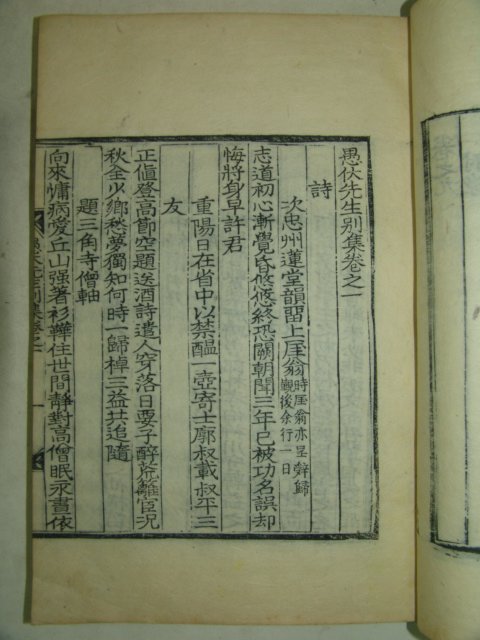 愚伏先生別集卷之一
詩
次忠州蓮堂韻留上厓翁時厓翁亦呈辭歸
覲後余行一日
志道初心漸覺昏悠悠終恐關朝聞三年已被功名誤却
悔將身早許君
重陽日在省中以禁醞一壺寄士廓叔載叔平三
友
正値登高節空題送酒詩遣人穿落日要子醉荒籬官況
秋全少鄕愁夢獨知何時一歸棹三益共追隨
題三角寺僧軸
向來慵病愛丘山强著衫鞾住世間靜對高僧眠永晝依
愚伏先生別集卷之一
一